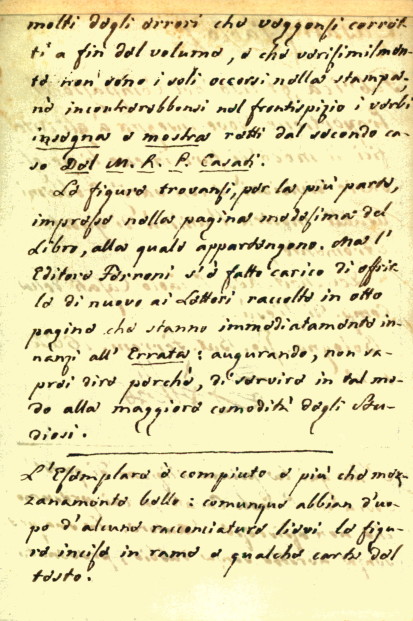 molti degli errori che veggonsi corret-
ti a fin del volume, e che verisimilmen-
te non sono i soli occorsi nella stampa,
nè incontrerebbensi nel frontispizio i verbi
insegna e mostra retti dal secondo ca-
so Del M. R. P. Casati.
Le figure trovansi, per la più parte,
impresse nella pagina medesima del
Libro, alla quale appartengono. Ma l'
Editore Ferroni s'è fatto carico di offrir-
le di nuovo ai Lettori raccolte in otto
pagine che stanno immediatamente in-
nanzi all' Errata: augurando, non sa-
prei dire perchè, di servire in tal mo-
do alla maggiore comodità degli Stu-
diosi.
L'Esemplare è compiuto e più che mez-
zanamente bello: comunque abbian d'uo-
po d'alcuna racconciatura lievi le figu-
re incise in rame e qualche carta del
testo.